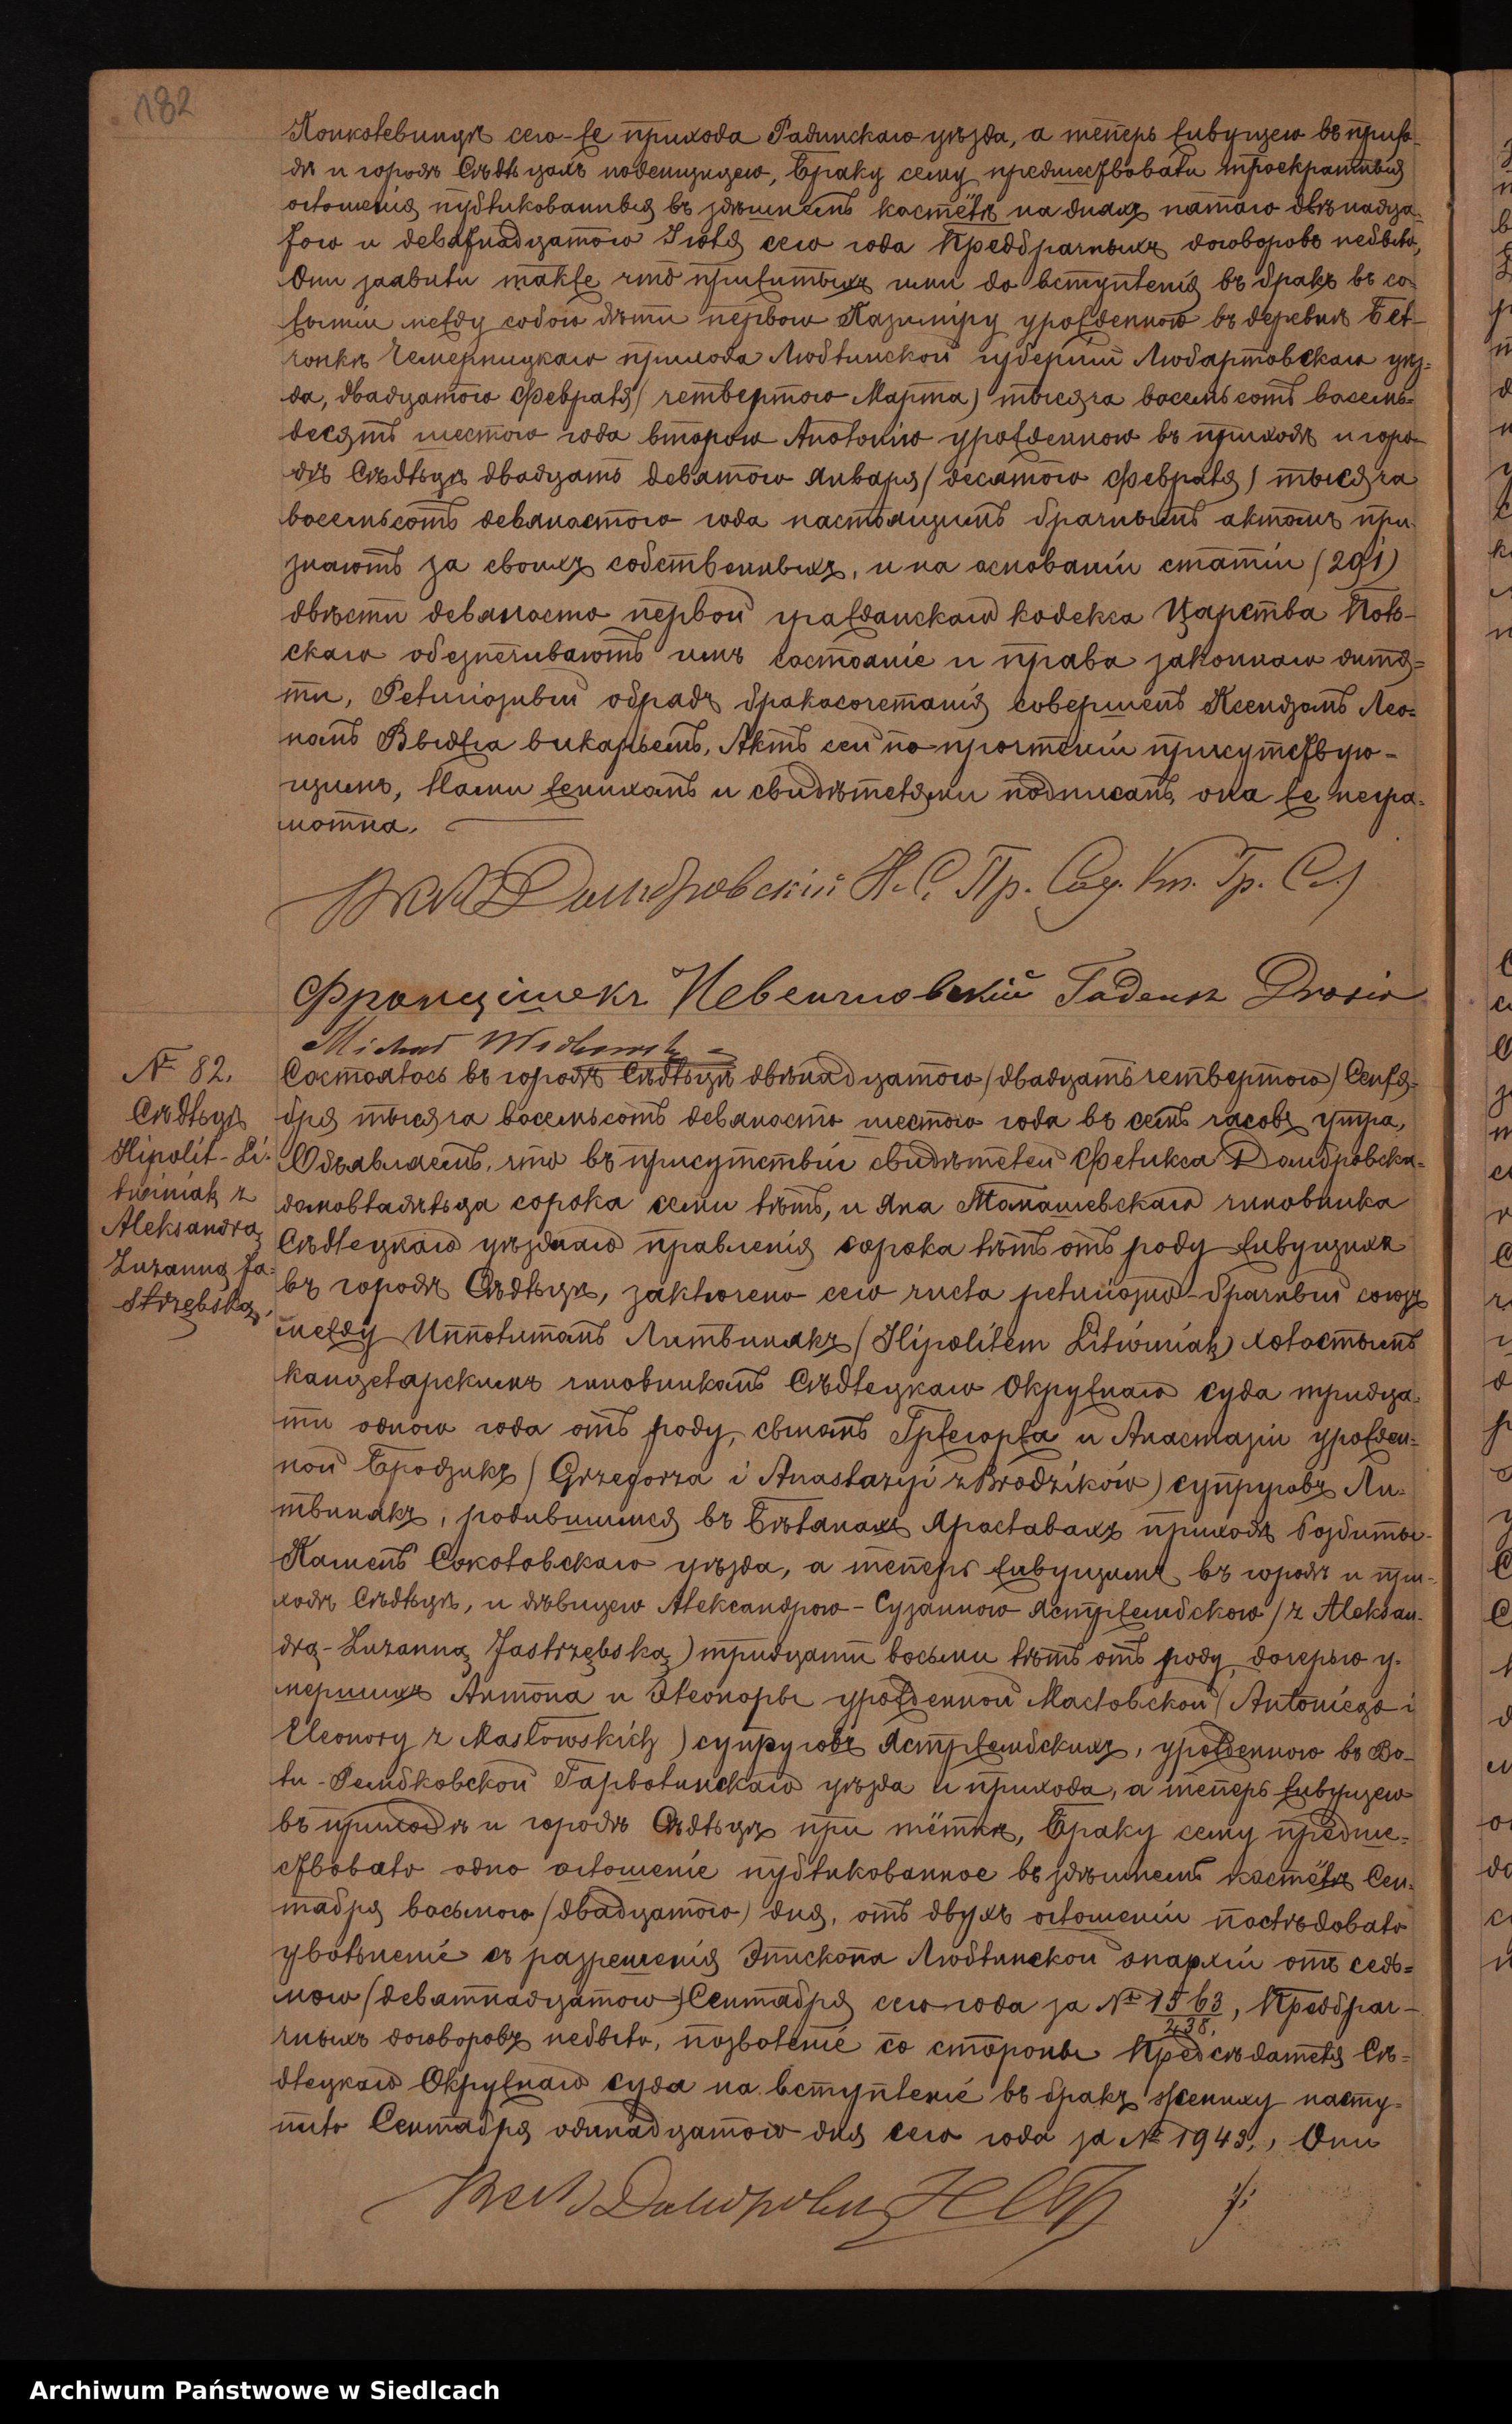 182
Конколевницѣ сего-же прихода Радинскаго уѣзда, а теперь живущею въ прихо-
дѣ и городѣ Сѣдльцахъ поденщицею, Браку сему предшествовали троекратныя
оглошенія публикованныя въ здѣшнемъ костёлѣ на дняхъ пятаго двѣнадца-
таго и девятнадцатаго Іюля сего года Предбрачныхъ договоровъ небыло,
Они заявили также что прижитыхъ ими до вступленія въ бракъ въ со-
житіи между собою дѣти первого Казиміру урожденного въ деревнѣ Бел-
чонкѣ Чемерницкаго прихода Люблинской губерніи Любартовскаго уѣз-
да, двадцатого Февраля (четвертого Марта) тысяча восемьсотъ восемь-
десятъ шестого года второго Анолонію урожденного въ приходѣ и горо-
дѣ Сѣдльцѣ двадцать девятого Января (десятого Февраля) тысяча
восемьсотъ девяностого года настоящимъ брачнымъ актомъ при-
знаютъ за своихъ собственныхъ, и на основаніи статіи (291)
двѣсти девяносто первой гражданскаго кодекса Царства Поль-
скаго обезпечиваютъ имъ состояніе и права законнаго дитя-
ти, Религіозный обрядъ бракосочетанія совершенъ Ксендзомъ Лео-
номъ Выджга викаріемъ, Актъ сей по прочтеніи присутствую-
щимъ, Нами женихомъ и свидѣтелями подписанъ, она же негра-
мотна.
Домбровскій Н. С. Пр. Сод. Кн. Гр. С.
Францішекъ Невенгловскій Tadeusz Drosio
Michał
№ 82.
Сѣдльцѣ
Hipolit-Li-
twiniak z
Aleksandrą
Zuzanną Ja-
strzębską,
Состоялось въ городѣ Сѣдльцѣ двѣнадцатого (двадцать четвертого) Сентя-
бря тысяча восемьсотъ девяносто шестого года въ семь часовъ утра,
Объявляемъ, что въ присутствіи свидѣтелей Феликса Домбровска-
домовладѣльца сорока семи лѣтъ, и Яна Томашевскаго чиновника
Сѣдлецкаго уѣзднаго правленія сорока лѣтъ отъ роду живущихъ
въ городѣ Сѣдльцѣ, заключено сего числа религіозно-брачный союзъ
между Ипполитомъ Литвинякъ (Hipolitem Litwiniak) холостымъ
канцелярскимъ чиновникомъ Сѣдлецкаго Окружнаго суда тридца-
ти одного года отъ роду, сыномъ Гржегоржа и Анастазіи урожден-
ной Бродзикъ (Grzegorza i Anastazyi z Brodzików) супруговъ Ли-
твинякъ, родившимся въ Бѣланахъ Ярославахъ приходѣ Розбиты-
Камень Соколовскаго уѣзда, а теперь живущимъ въ городѣ и при-
ходѣ Сѣдльцѣ, и дѣвицею Александрою-Сузанною Ястржембскою (z Aleksan-
drą-Zuzanną Jastrzębską) тридцати восьми лѣтъ отъ роду, дочерью у-
мершихъ Антона и Элеоноры урожденной Масловской (Antoniego i
Eleonory z Masłowskich) супруговъ Ястржембскихъ, урожденною въ Во-
ли-Рембковской Гарволинскаго уѣзда и прихода, а теперь живущею
въ приходѣ и городѣ Сѣдльцѣ при тёткѣ, Браку сему предше-
ствовало одно оглошеніе публикованное въ здѣшнемъ костёлѣ Сен-
тября восьмого (двадцатого) дня, отъ двухъ оглошеніи послѣдовало
увольненіе съ разрешенія Эпископа Люблинской эпархіи отъ седь-
мого (девятнадцатого) Сентября сего года за № 1563/238, Предбрач-
чныхъ договоровъ небыло, позволеніе со стороны Предсѣдателя Сѣ-
длецкаго Окружнаго суда на вступленіе въ бракъ жениху насту-
пило Сентября одинадцатого дня сего года за № 1943, Они
Домбровскій Н С Пр
Archiwum Państwowe w Siedlcach